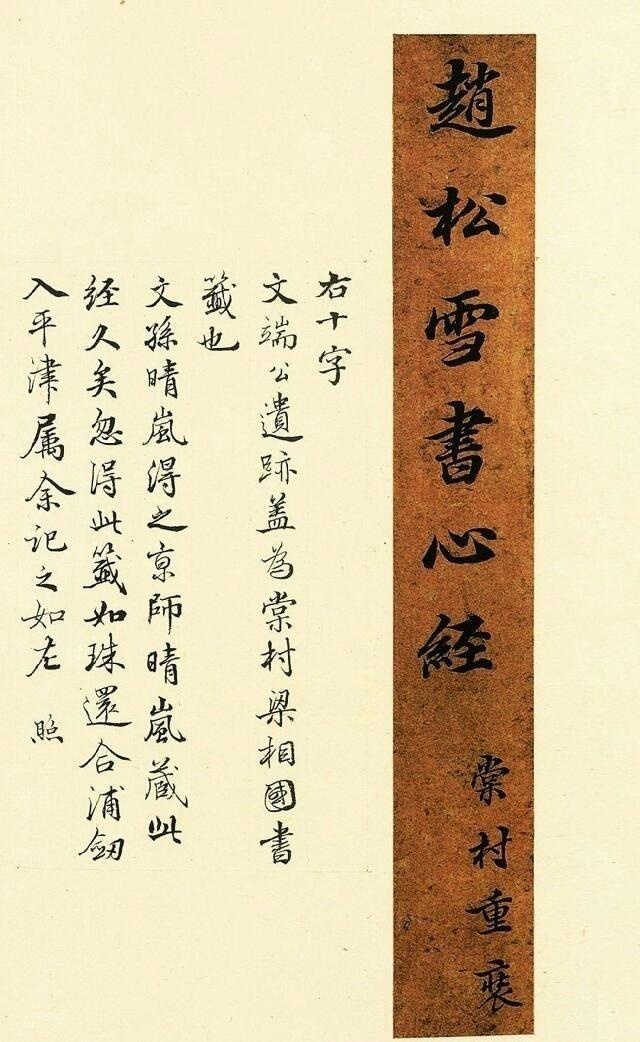 趙松雪書心経
棠村重裝
右十字
文端公遺跡蓋為棠村梁相國書
籤也
文孫晴嵐得之京師晴嵐蔵此
経久矣忽得此籤如珠還合浦劒
入平津属余記之如左 照